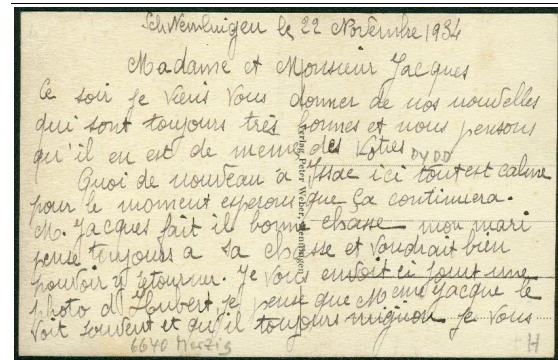 le 22 Novembre 1934
Madame et Monsieur Jacques
Ce soir je viens vous donner de nos nouvelles
qui sont toujours très bonnes et nous pensons
qu'il en est de meme des Vôtres
Quoi de nouveau à ici tout est calme
pour le moment esperons que ça continuera.
M. Jacques fait il bonne chasse mon mari
pense toujours a sa chasse et voudrait bien
pouvoir y retourner. Je vous envoit ci joint une
photo d'Hubert je pense que Meme Jacque le
voit souvent et qu'il toujours mignon je vous
6640 Merzig
H
Verlag Peter Weber,